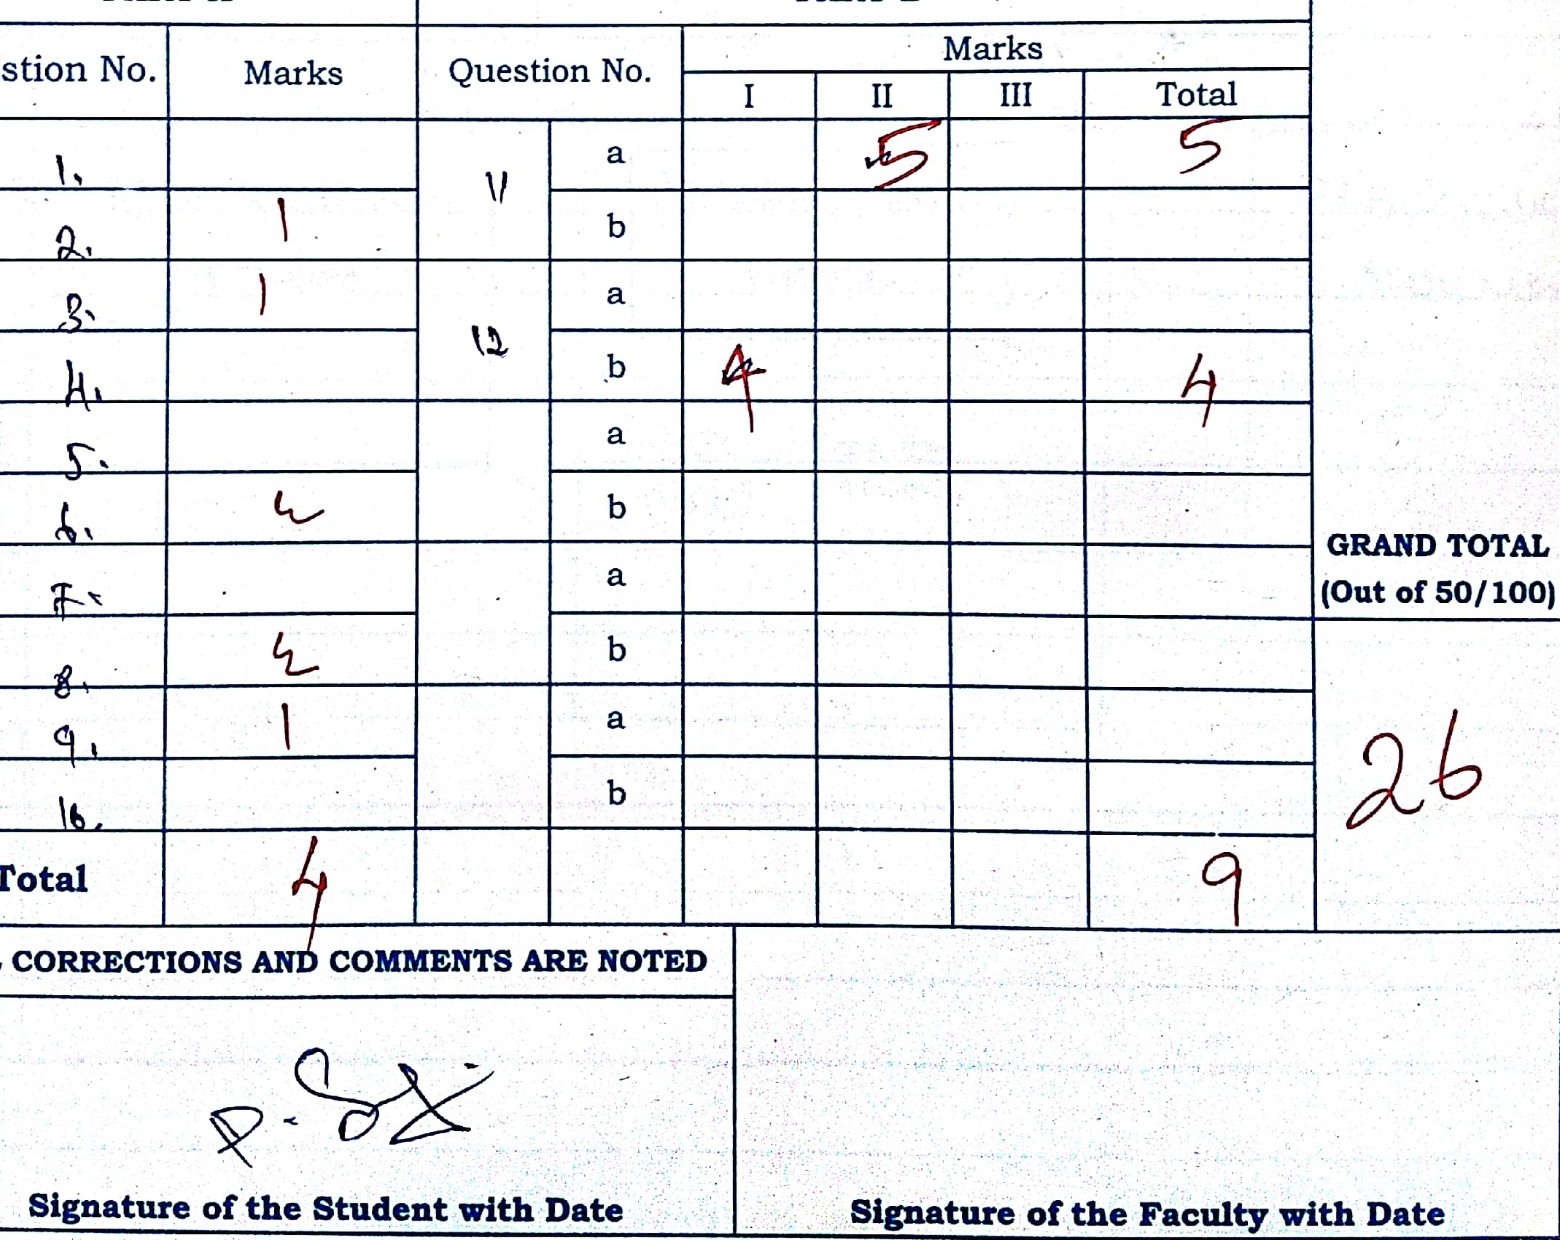 stion No. Marks Question No. Marks
I II III Total
1. 11 a 5 5
2. 1 b
3. 1 12 a
4. b 4 4
5. a
6. b
7. a
8. b
9. 1 a
10. b
GRAND TOTAL
(Out of 50/100)
26
Total 4 9
CORRECTIONS AND COMMENTS ARE NOTED
Signature of the Student with Date Signature of the Faculty with Date